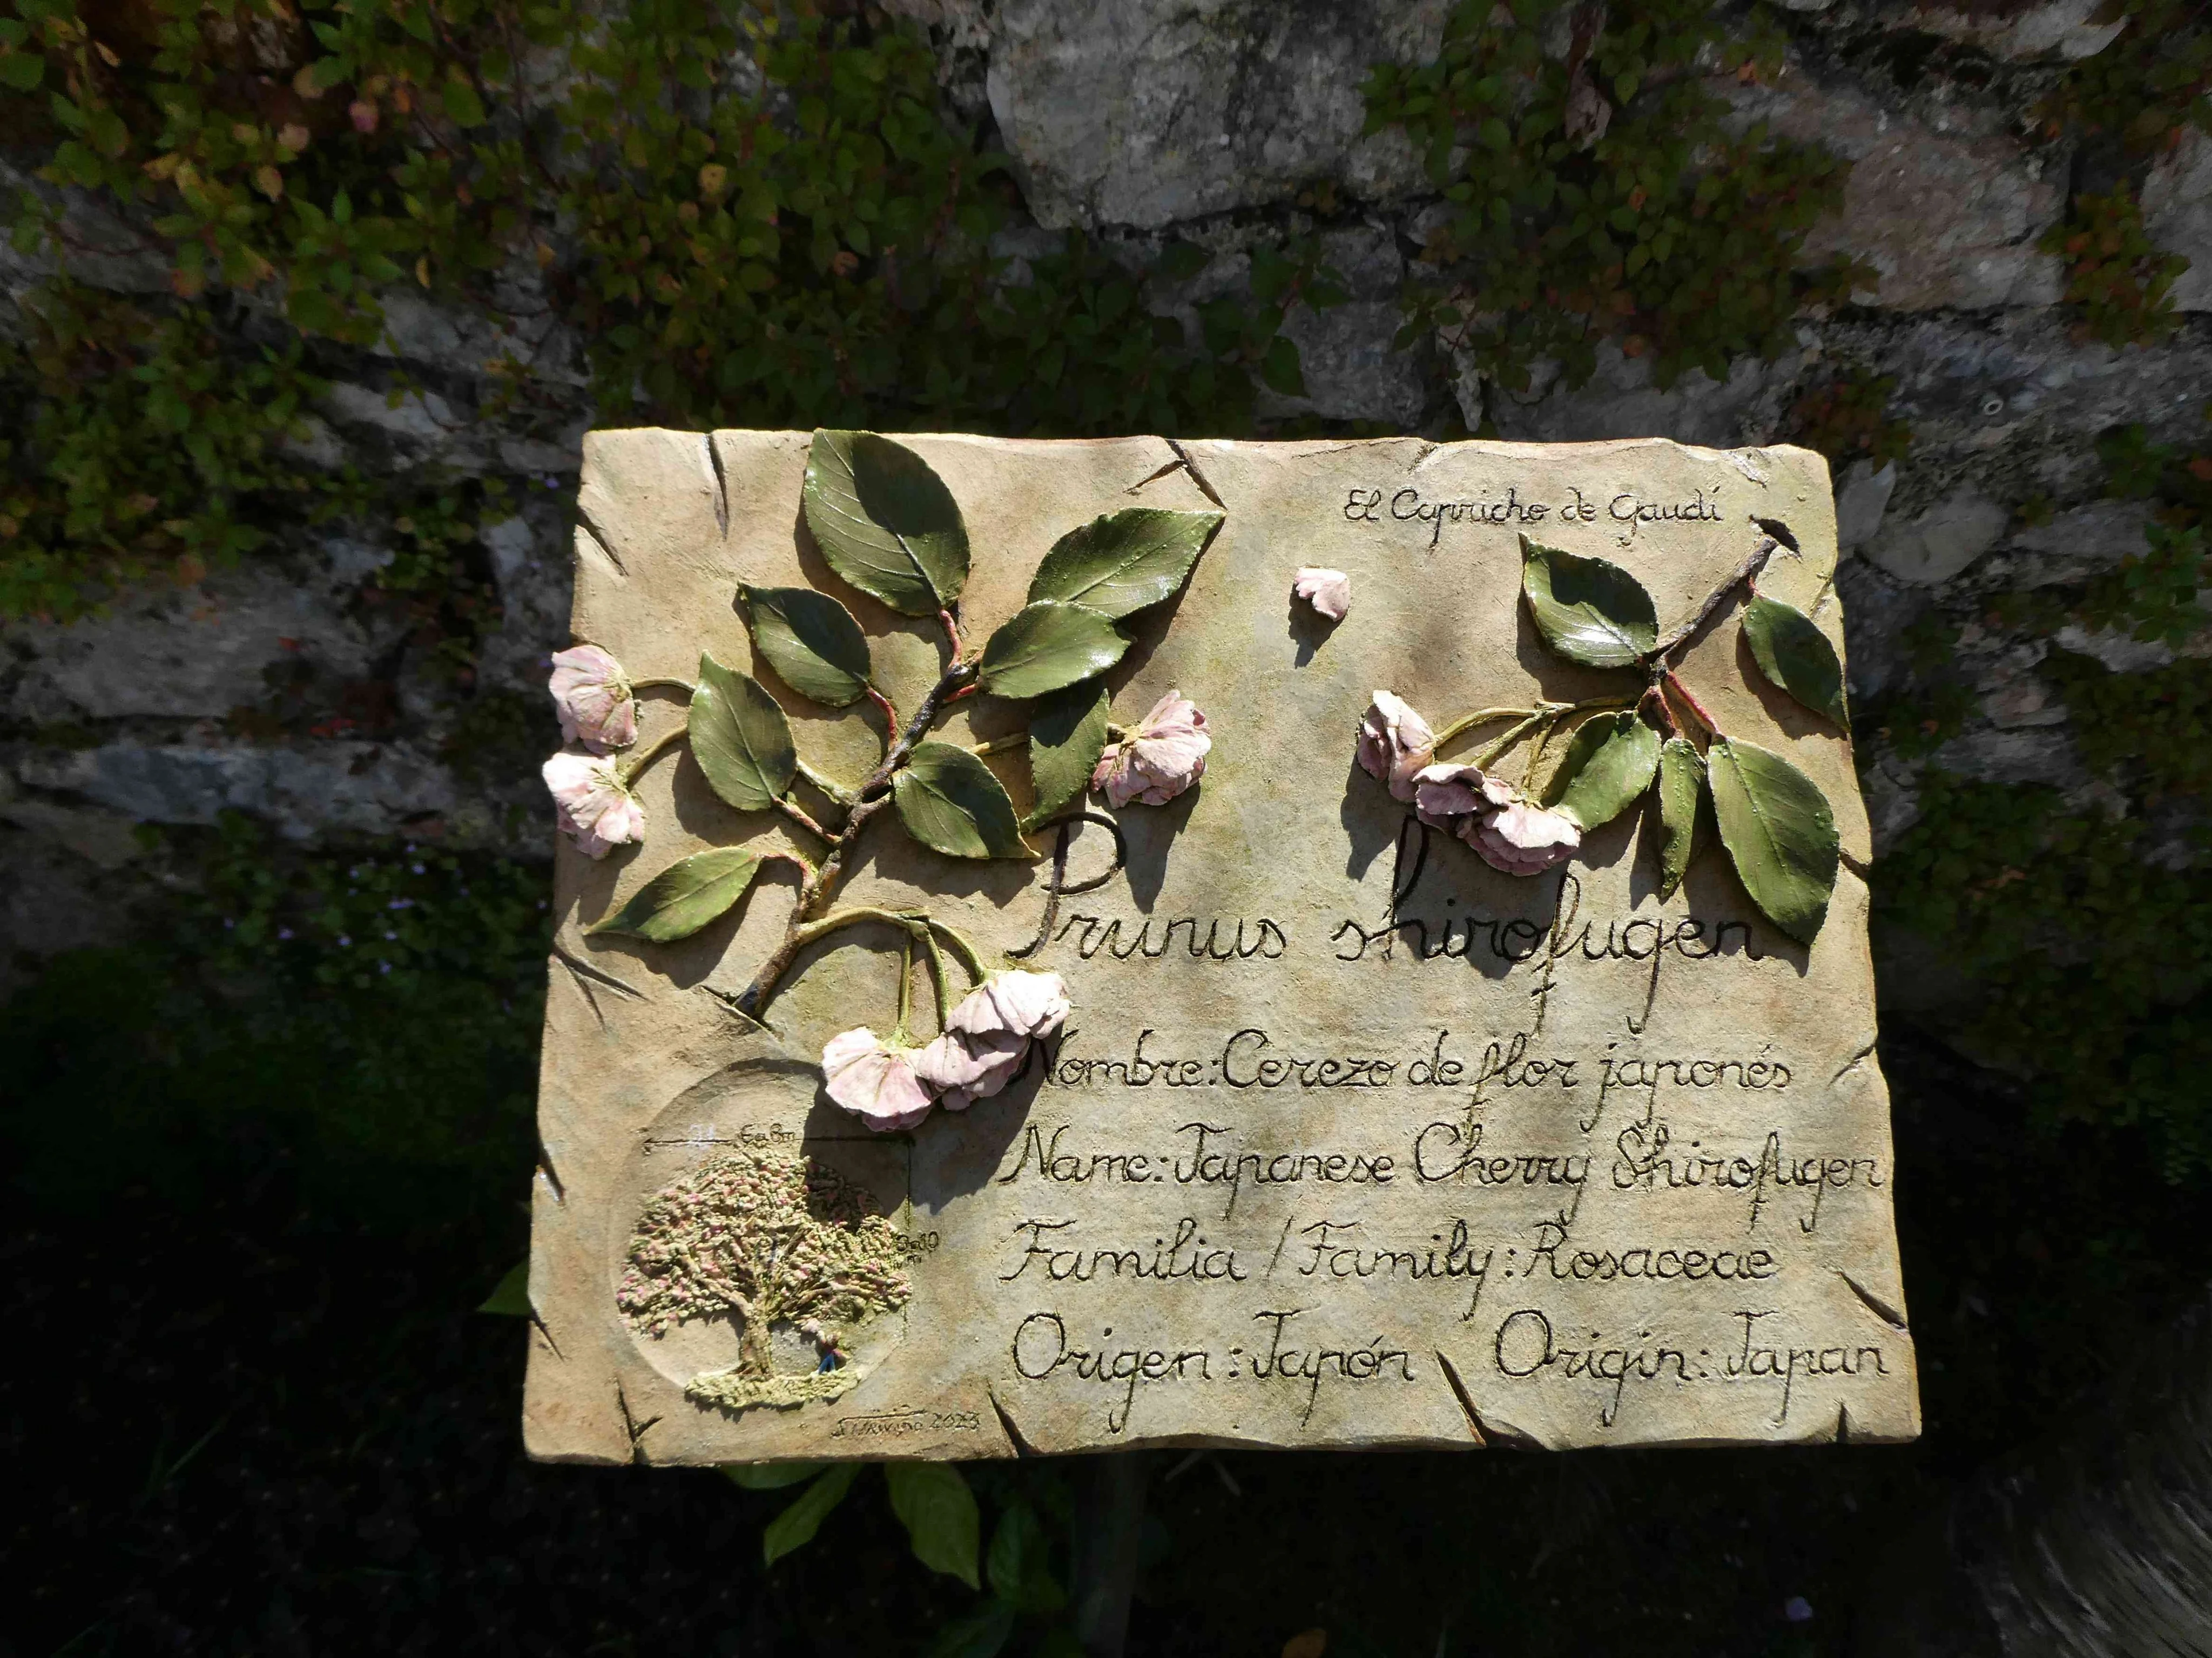 El Capricho de Gaudí
Prunus shirofugen
Nombre: Cerezo de flor japonés
Name: Japanese Cherry Shirofugen
Familia / Family: Rosaceae
Origen: Japón Origin: Japan
6 a 8m
2023